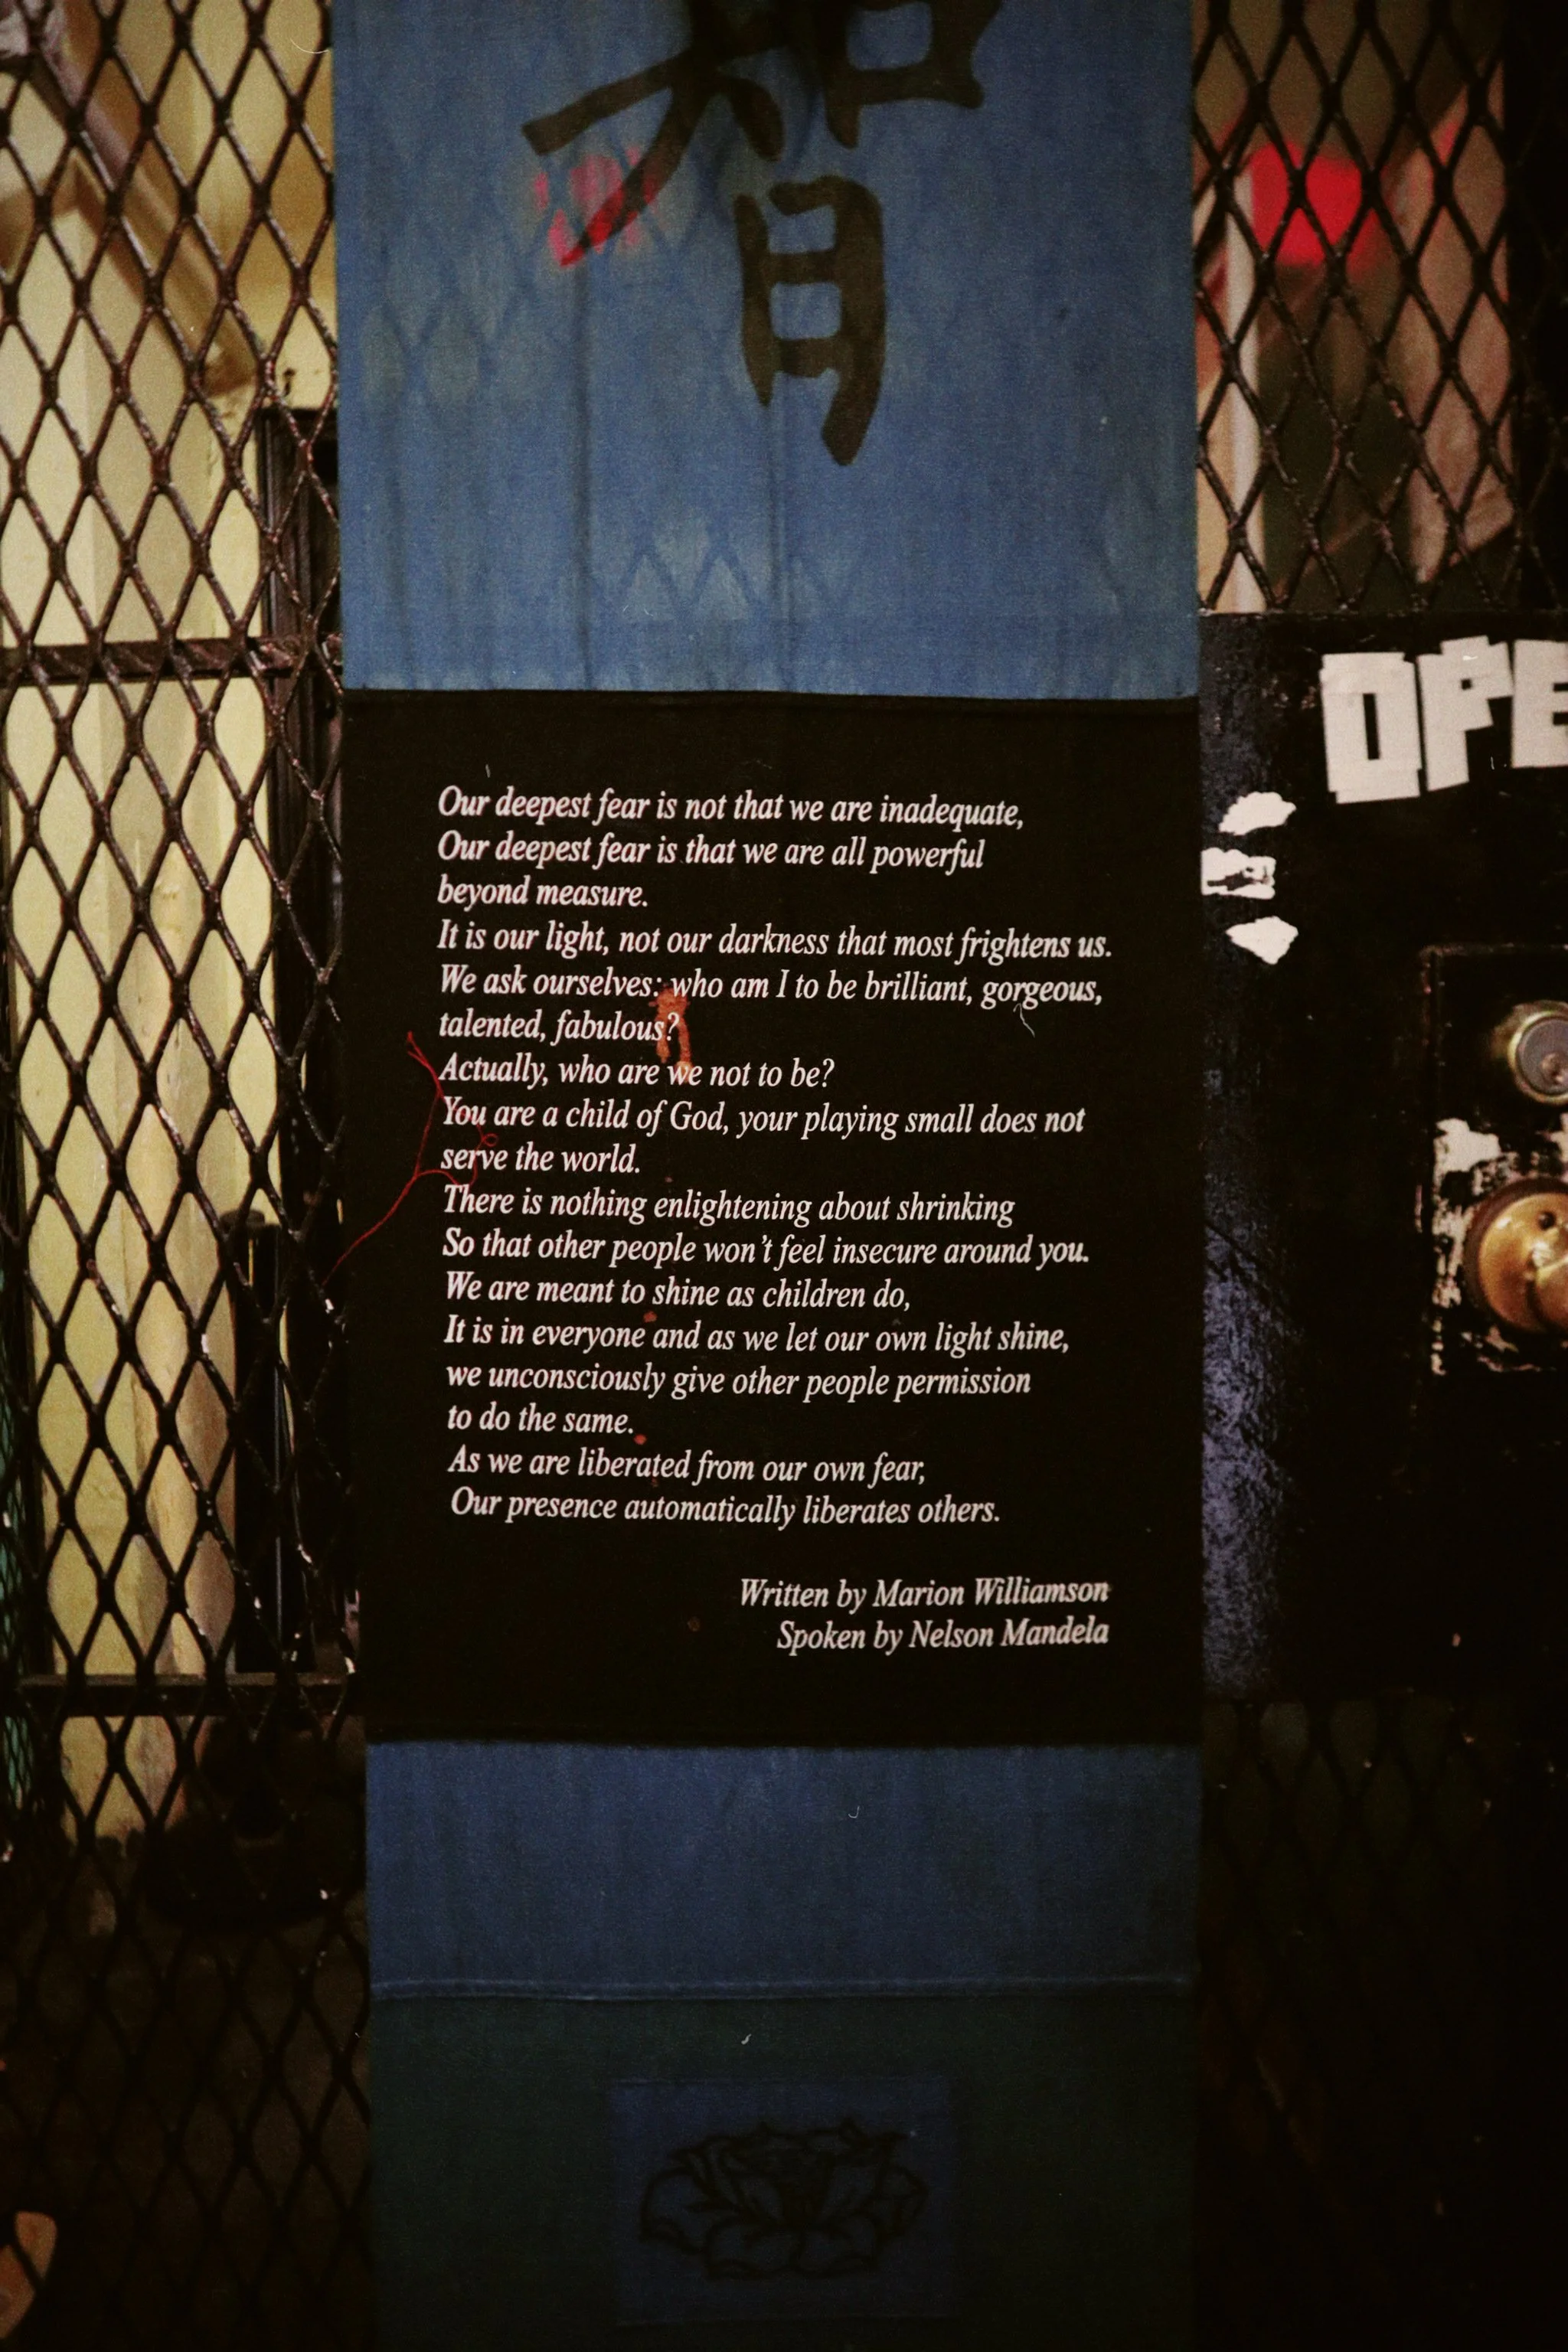 智
Our deepest fear is not that we are inadequate,
Our deepest fear is that we are all powerful
beyond measure.
It is our light, not our darkness that most frightens us.
We ask ourselves: who am I to be brilliant, gorgeous,
talented, fabulous?
Actually, who are we not to be?
You are a child of God, your playing small does not
serve the world.
There is nothing enlightening about shrinking
So that other people won't feel insecure around you.
We are meant to shine as children do,
It is in everyone and as we let our own light shine,
we unconsciously give other people permission
to do the same.
As we are liberated from our own fear,
Our presence automatically liberates others.
Written by Marion Williamson
Spoken by Nelson Mandela
OPE